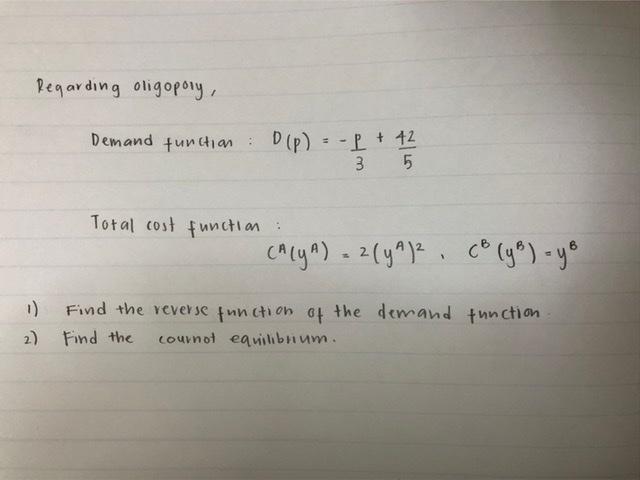 Regarding oligopoly,
Demand function : D(p) = - p/3 + 42/5
Total cost function :
C^A(y^A) = 2(y^A)^2 , C^B(y^B) = y^B
1) Find the reverse function of the demand function.
2) Find the cournot equilibrium.